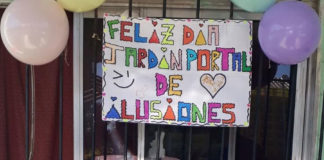 FELÍZ DÍA
JARDÍN PORTAL
DE
ILUSIONES